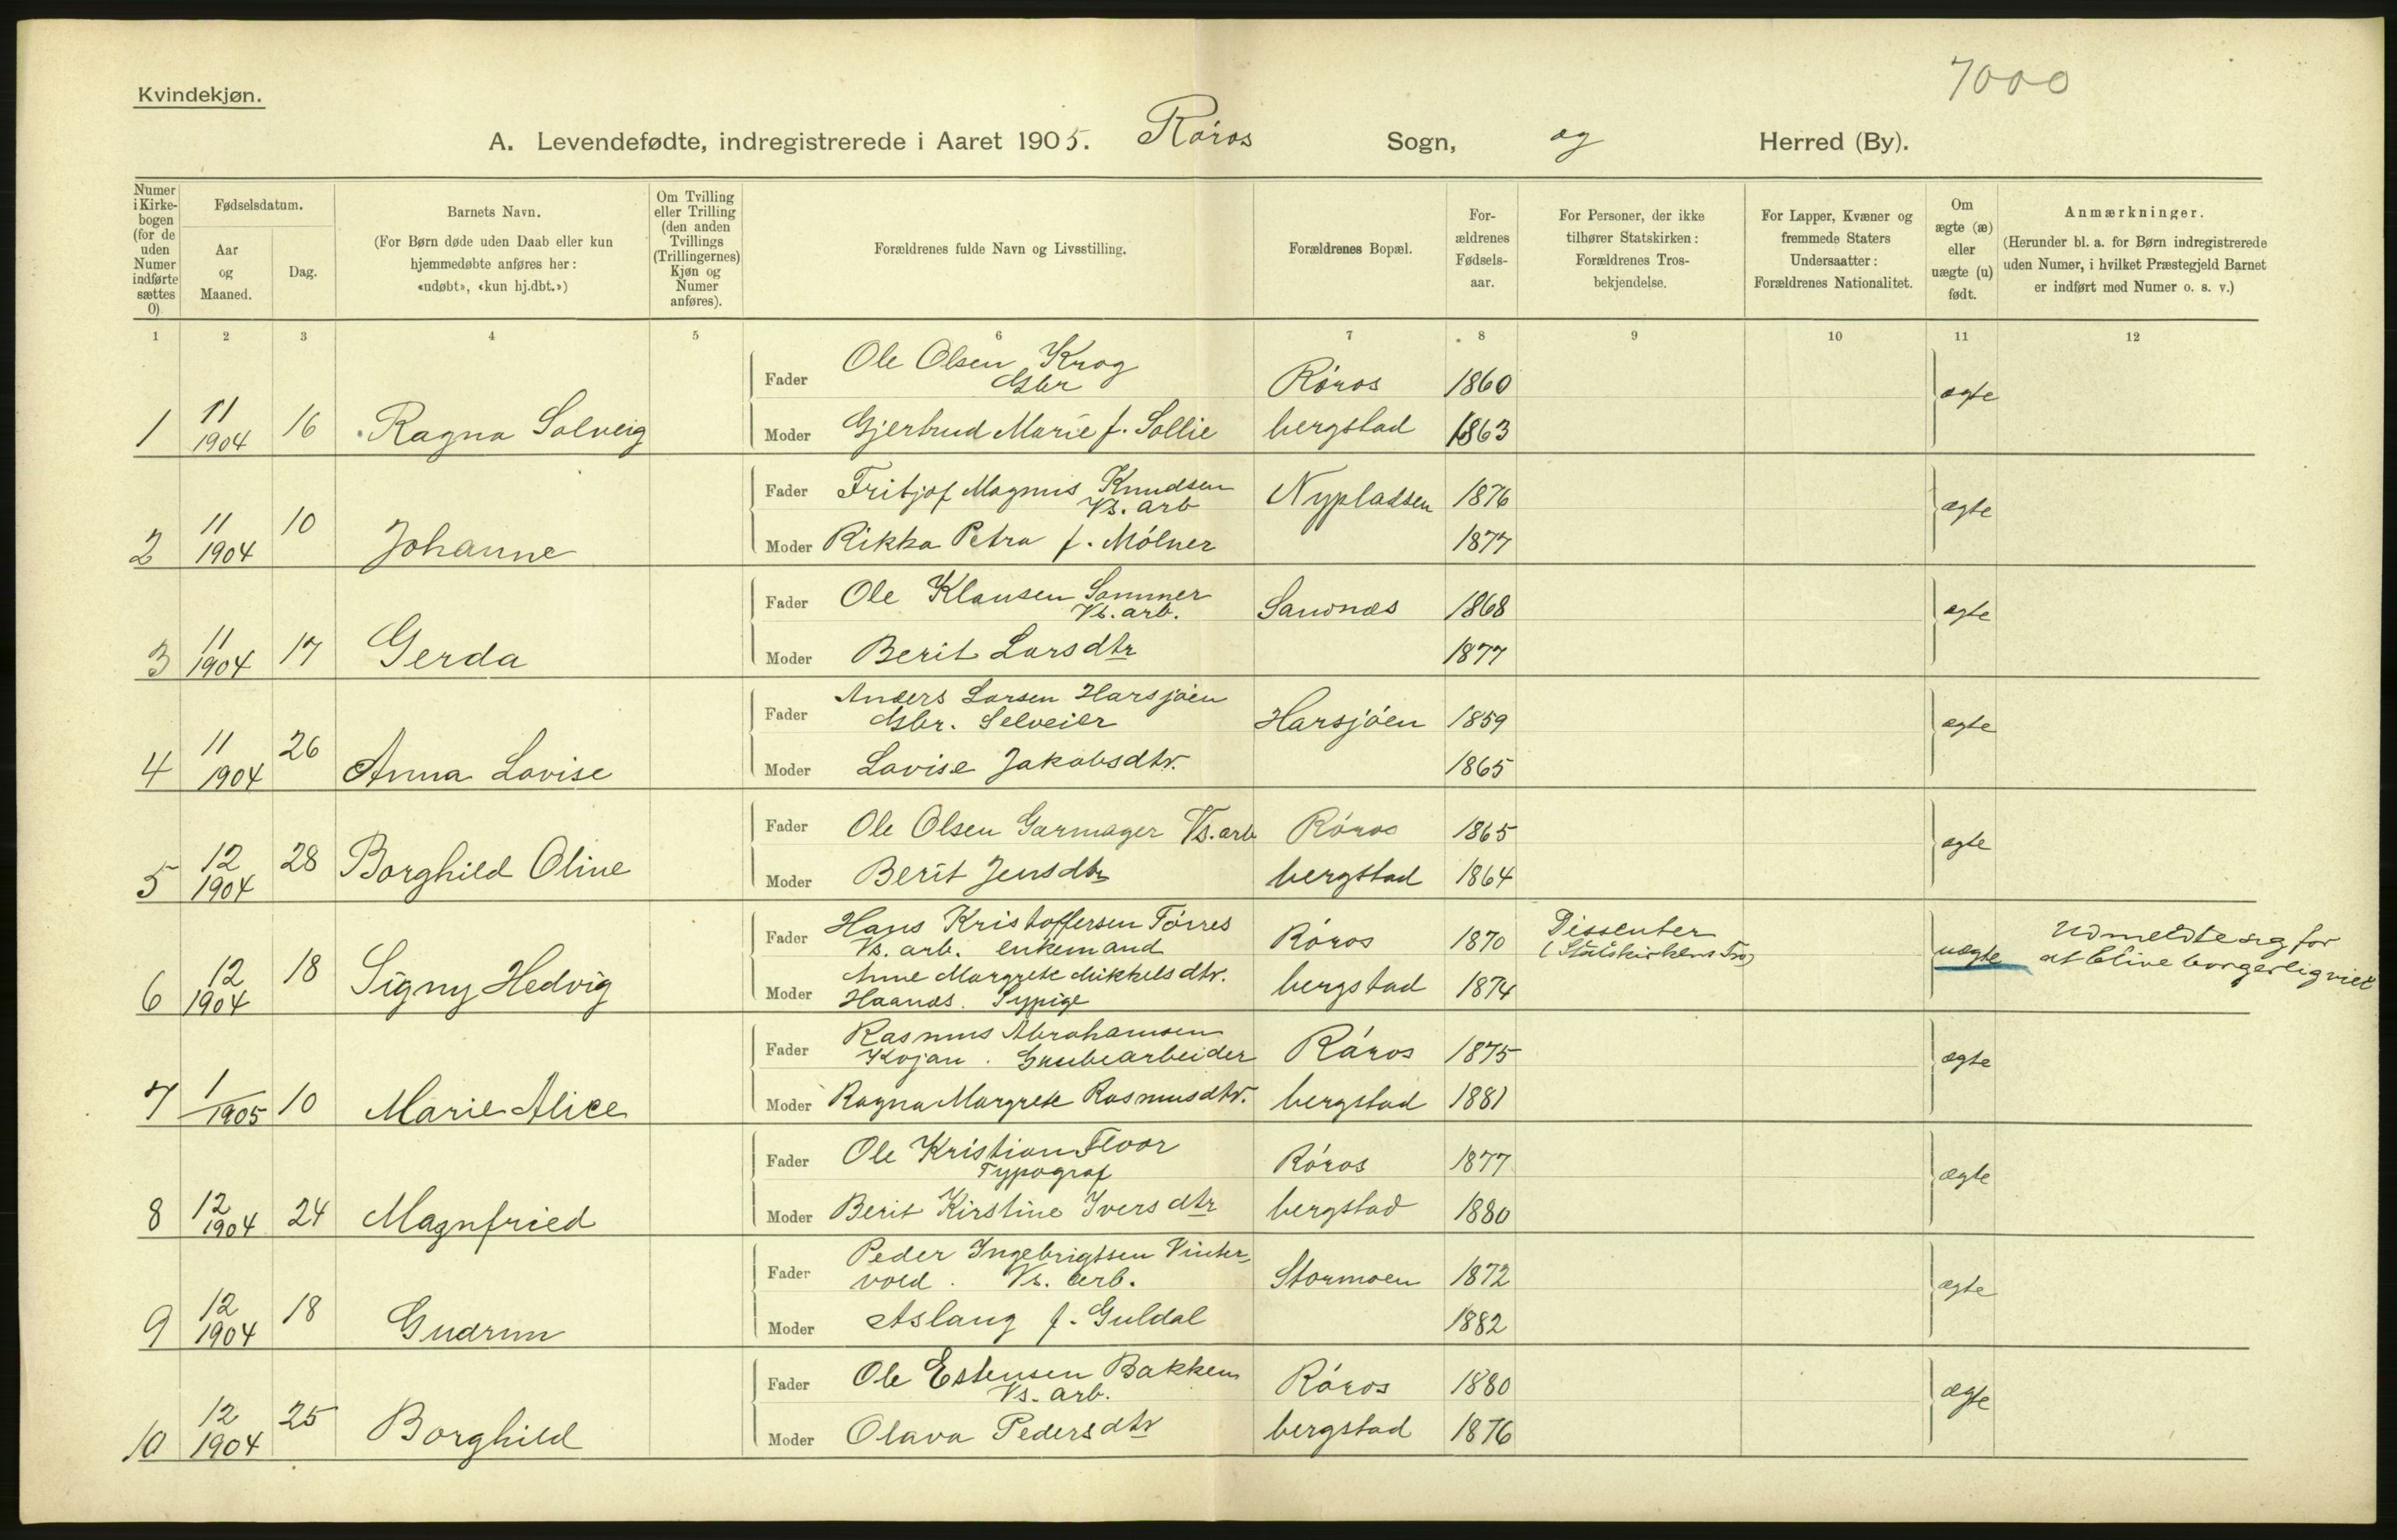 7000
Kvindekjøn.
A. Levendefødte, indregistrerede i Aaret 1905. Røros Sogn, og Herred (By).
Numer i Kirke-bogen (for de uden Numer indførte sættes 0)
Fødselsdatum.
Aar og Maaned.
Dag.
Barnets Navn.
(For Børn døde uden Daab eller kun hjemmedøbte anføres her: «udøbt», «kun hj.dbt.»)
Om Tvilling eller Trilling (den anden Tvillings (Trillingernes) Kjøn og Numer anføres).
Forældrenes fulde Navn og Livsstilling.
Forældrenes Bopæl.
For-ældrenes Fødsels-aar.
For Personer, der ikke tilhører Statskirken: Forældrenes Tros-bekjendelse.
For Lapper, Kvæner og fremmede Staters Undersaatter: Forældrenes Nationalitet.
Om ægte (æ) eller uægte (u) født.
Anmærkninger.
(Herunder bl. a. for Børn indregistrerede uden Numer, i hvilket Præstegjeld Barnet er indført med Numer o. s. v.)
1 2 3 4 5 6 7 8 9 10 11 12
Fader Ole Olsen Krog
Gbr Røros 1860 ægte
1 11 1904 16 Ragna Solveig
Moder Gjertrud Marie f. Sollie bergstad 1863
Fader Fritjof Magnus Knudsen
Vs. arb Nypladsen 1876 ægte
2 11 1904 10 Johanne
Moder Rikka Petra f. Mølner 1877
Fader Ole Klausen Sommer
Vs. arb. Sandnæs 1868 ægte
3 11 1904 17 Gerda
Moder Berit Larsdtr 1877
Fader Anders Larsen Harsjøen
Gbr. Selveier Harsjøen 1859 ægte
4 11 1904 26 Anna Lovise
Moder Lovise Jakobsdtr. 1865
Fader Ole Olsen Garmager Vs. arb Røros 1865 ægte
5 12 1904 28 Borghild Oline
Moder Berit Jensdtr bergstad 1864
Fader Hans Kristoffersen Tørres
Vs. arb. enkemand Røros 1870 Dissenter
(Statskirkens Tro) uægte Udmeldte sig for
at blive borgerlig viet
6 12 1904 18 Signy Hedvig
Moder Anne Margrete Mikkelsdtr.
Haanæs. Sypige bergstad 1874
Fader Rasmus Abrahamsen
Kojan. Grubearbeider Røros 1875 ægte
7 1 1905 10 Marie Alice
Moder Ragna Margrete Rasmusdtr. bergstad 1881
Fader Ole Kristian Floor
Typograf Røros 1877 ægte
8 12 1904 24 Magnfried
Moder Berit Kirstine Iversdtr bergstad 1880
Fader Peder Ingebrigtsen Vinter-
vold. Vs. arb. Stormoen 1872 ægte
9 12 1904 18 Gudrun
Moder Aslaug f. Guldal 1882
Fader Ole Estensen Bakken
Vs. arb. Røros 1880 ægte
10 12 1904 25 Borghild
Moder Olava Pedersdtr bergstad 1876